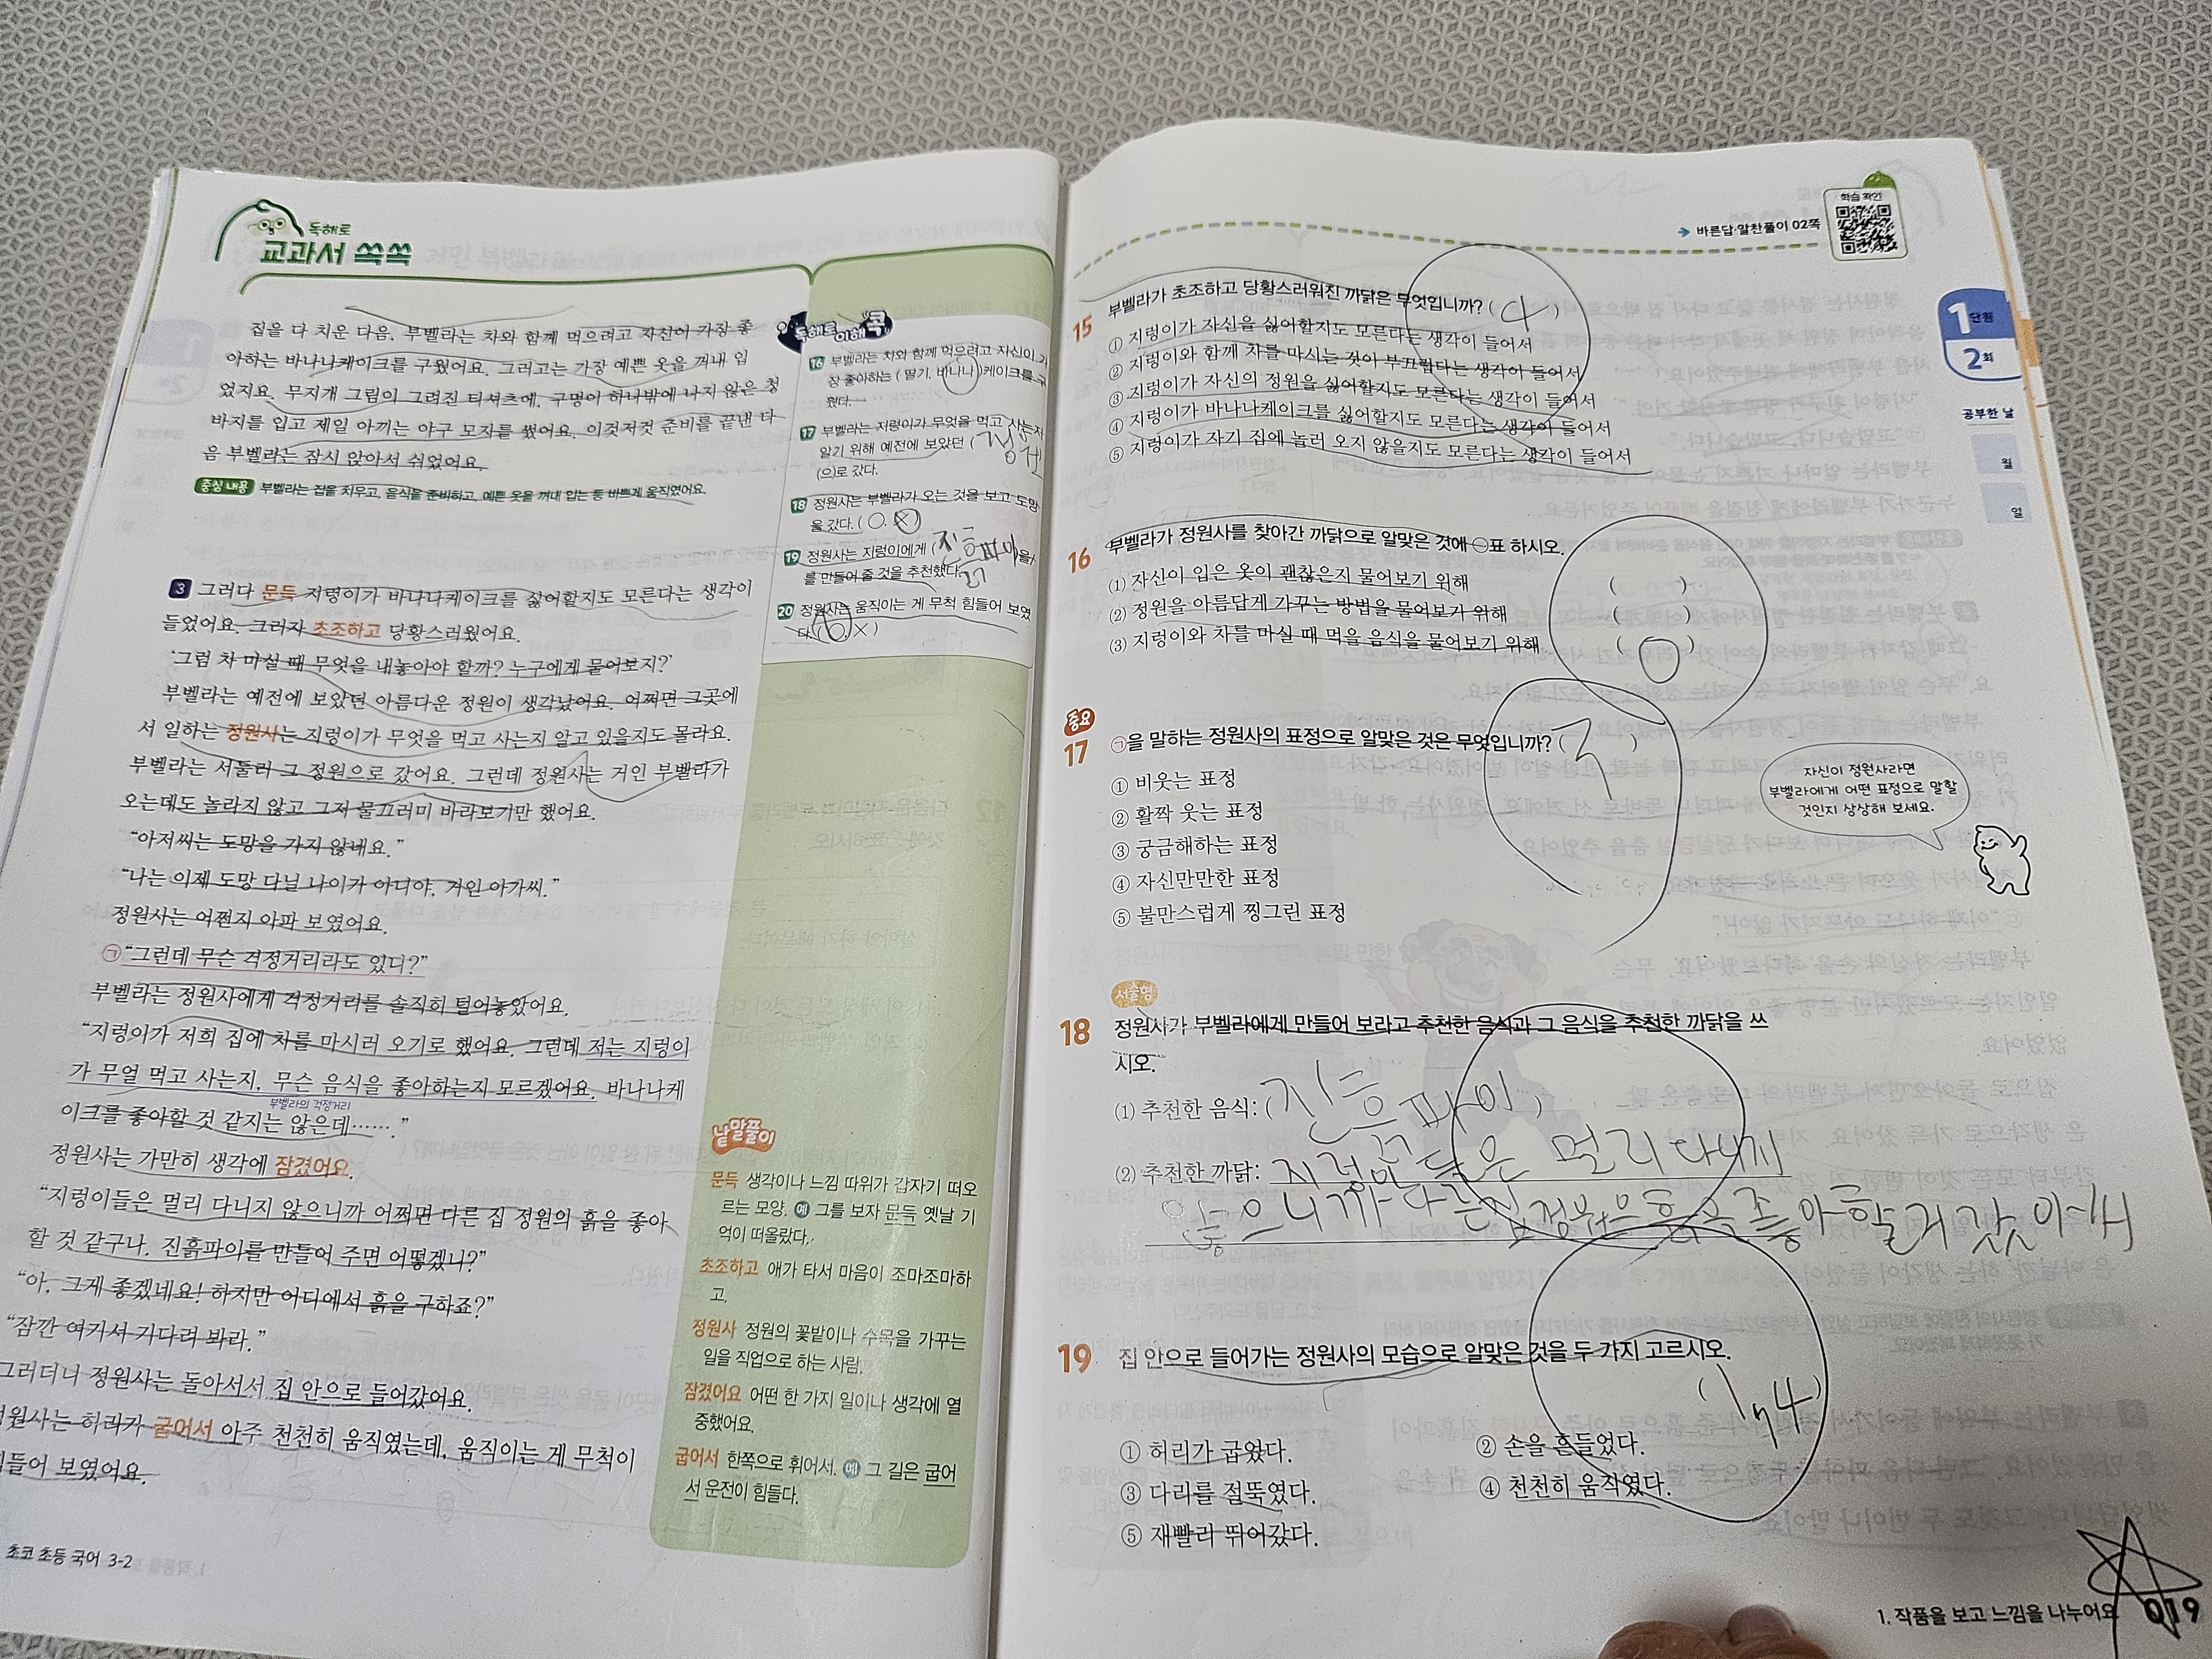 독해로
교과서 쏙쏙
집을 다 치운 다음, 부벨라는 차와 함께 먹으려고 자신이 가장 좋
아하는 바나나케이크를 구웠어요. 그러고는 가장 예쁜 옷을 꺼내 입
었지요. 무지개 그림이 그려진 티셔츠에, 구멍이 하나밖에 나지 않은 청
바지를 입고 제일 아끼는 야구 모자를 썼어요. 이것저것 준비를 끝낸 다
음 부벨라는 잠시 앉아서 쉬었어요.
중심 내용 부벨라는 집을 치우고, 음식을 준비하고, 예쁜 옷을 꺼내 입는 등 바쁘게 움직였어요.
3 그러다 문득 지렁이가 바나나케이크를 싫어할지도 모른다는 생각이
들었어요. 그러자 초조하고 당황스러웠어요.
'그럼 차 마실 때 무엇을 내놓아야 할까? 누구에게 물어보지?'
부벨라는 예전에 보았던 아름다운 정원이 생각났어요. 어쩌면 그곳에
서 일하는 정원사는 지렁이가 무엇을 먹고 사는지 알고 있을지도 몰라요.
부벨라는 서둘러 그 정원으로 갔어요. 그런데 정원사는 거인 부벨라가
오는데도 놀라지 않고 그저 물끄러미 바라보기만 했어요.
"아저씨는 도망을 가지 않네요."
"나는 이제 도망 다닐 나이가 아니야, 거인 아가씨."
정원사는 어쩐지 아파 보였어요.
㉠"그런데 무슨 걱정거리라도 있니?"
부벨라는 정원사에게 걱정거리를 솔직히 털어놓았어요.
"지렁이가 저희 집에 차를 마시러 오기로 했어요. 그런데 저는 지렁이
가 무얼 먹고 사는지, 무슨 음식을 좋아하는지 모르겠어요. 바나나케
부벨라의 걱정거리
이크를 좋아할 것 같지는 않은데……."
정원사는 가만히 생각에 잠겼어요.
"지렁이들은 멀리 다니지 않으니까 어쩌면 다른 집 정원의 흙을 좋아
할 것 같구나. 진흙파이를 만들어 주면 어떻겠니?"
"아, 그게 좋겠네요! 하지만 어디에서 흙을 구하죠?"
"잠깐 여기서 기다려 봐라."
그러더니 정원사는 돌아서서 집 안으로 들어갔어요.
정원사는 허리가 굽어서 아주 천천히 움직였는데, 움직이는 게 무척이
힘들어 보였어요.
초코 초등 국어 3-2
독해로 이해 콕
16 부벨라는 차와 함께 먹으려고 자신이 가
장 좋아하는 ( 딸기, 바나나 )케이크를 구
웠다.
17 부벨라는 지렁이가 무엇을 먹고 사는지
알기 위해 예전에 보았던 ( 정원
(으)로 갔다.
18 정원사는 부벨라가 오는 것을 보고 도망
을 갔다. ( ○, × )
19 정원사는 지렁이에게 ( 진흙파이 을/
를 만들어 줄 것을 추천했다.
20 정원사는 움직이는 게 무척 힘들어 보였
다. ( ○, × )
낱말풀이
문득 생각이나 느낌 따위가 갑자기 떠오
르는 모양. 예 그를 보자 문득 옛날 기
억이 떠올랐다.
초조하고 애가 타서 마음이 조마조마하
고.
정원사 정원의 꽃밭이나 수목을 가꾸는
일을 직업으로 하는 사람.
잠겼어요 어떤 한 가지 일이나 생각에 열
중했어요.
굽어서 한쪽으로 휘어서. 예 그 길은 굽어
서 운전이 힘들다.
바른답·알찬풀이 02쪽
학습 확인
1단원
2회
공부한 날
월
일
15 부벨라가 초조하고 당황스러워진 까닭은 무엇입니까? ( 4 )
① 지렁이가 자신을 싫어할지도 모른다는 생각이 들어서
② 지렁이와 함께 차를 마시는 것이 부끄럽다는 생각이 들어서
③ 지렁이가 자신의 정원을 싫어할지도 모른다는 생각이 들어서
④ 지렁이가 바나나케이크를 싫어할지도 모른다는 생각이 들어서
⑤ 지렁이가 자기 집에 놀러 오지 않을지도 모른다는 생각이 들어서
16 부벨라가 정원사를 찾아간 까닭으로 알맞은 것에 ○표 하시오.
(1) 자신이 입은 옷이 괜찮은지 물어보기 위해 ( )
(2) 정원을 아름답게 가꾸는 방법을 물어보기 위해 ( )
(3) 지렁이와 차를 마실 때 먹을 음식을 물어보기 위해 ( ○ )
중요
17 ㉠을 말하는 정원사의 표정으로 알맞은 것은 무엇입니까? ( 3 )
① 비웃는 표정
② 활짝 웃는 표정
③ 궁금해하는 표정
④ 자신만만한 표정
⑤ 불만스럽게 찡그린 표정
자신이 정원사라면
부벨라에게 어떤 표정으로 말할
것인지 상상해 보세요.
서술형
18 정원사가 부벨라에게 만들어 보라고 추천한 음식과 그 음식을 추천한 까닭을 쓰
시오.
(1) 추천한 음식: ( 진흙파이 )
(2) 추천한 까닭: 지렁이들은 멀리 다니지
않으니까 다른집 정원은 흙을 좋아할거 갔아서
19 집 안으로 들어가는 정원사의 모습으로 알맞은 것을 두 가지 고르시오.
( 1, 4 )
① 허리가 굽었다. ② 손을 흔들었다.
③ 다리를 절뚝였다. ④ 천천히 움직였다.
⑤ 재빨리 뛰어갔다.
1. 작품을 보고 느낌을 나누어요 019